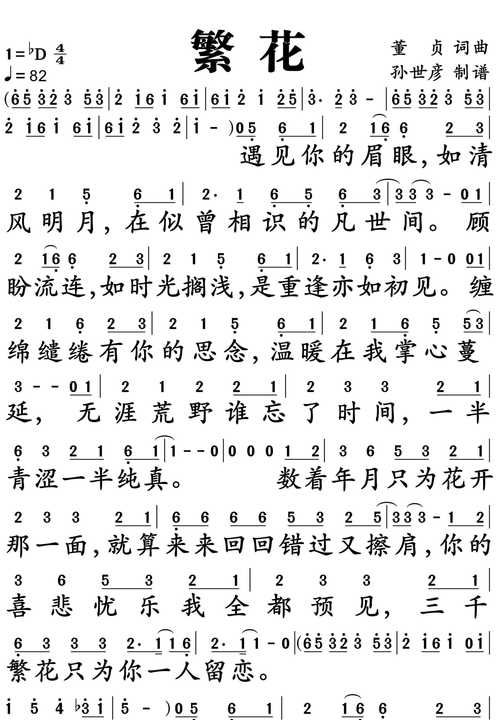 繁花
1=♭D 4/4
♩=82
董 贞 词曲
孙世彦 制谱
(6532 3 53|2 161 61|612 1 25|3. 23-|6532 3 53|
2 161 61|612 3 2|1-)05 61|2 166 23|
遇见你的眉眼,如清
2 1 5 61|2. 1 65 63|33 3-01|
风明月,在似曾相识的凡世间。顾
2 166 23|2 1 5 61|2. 1 63|1-0 01|
盼流连,如时光搁浅,是重逢亦如初见。缠
2 1 6 23|2 1 5 61|2 1 65 53|
绵缱绻有你的思念,温暖在我掌心蔓
3--01|2 1 2 21|2 3 3 23|
延, 无涯荒野谁忘了时间,一半
6 3 21 61|1--0|0 0 0 12|3 6 53 23|
青涩一半纯真。 数着年月只为花开
2 3 3 21|66 66 53 25|33 3-01|
那一面,就算来来回回错过又擦肩,你的
3 6 5 3 21|3 3 3 21|
喜悲忧乐我全都预见,三千
6 3 3 3|2. 116|21 1-0|(6532 3 53|2 161 01|
繁花只为你一人留恋。
1 5 4 ♭31|2 - 5.)05|61 2 166 23|